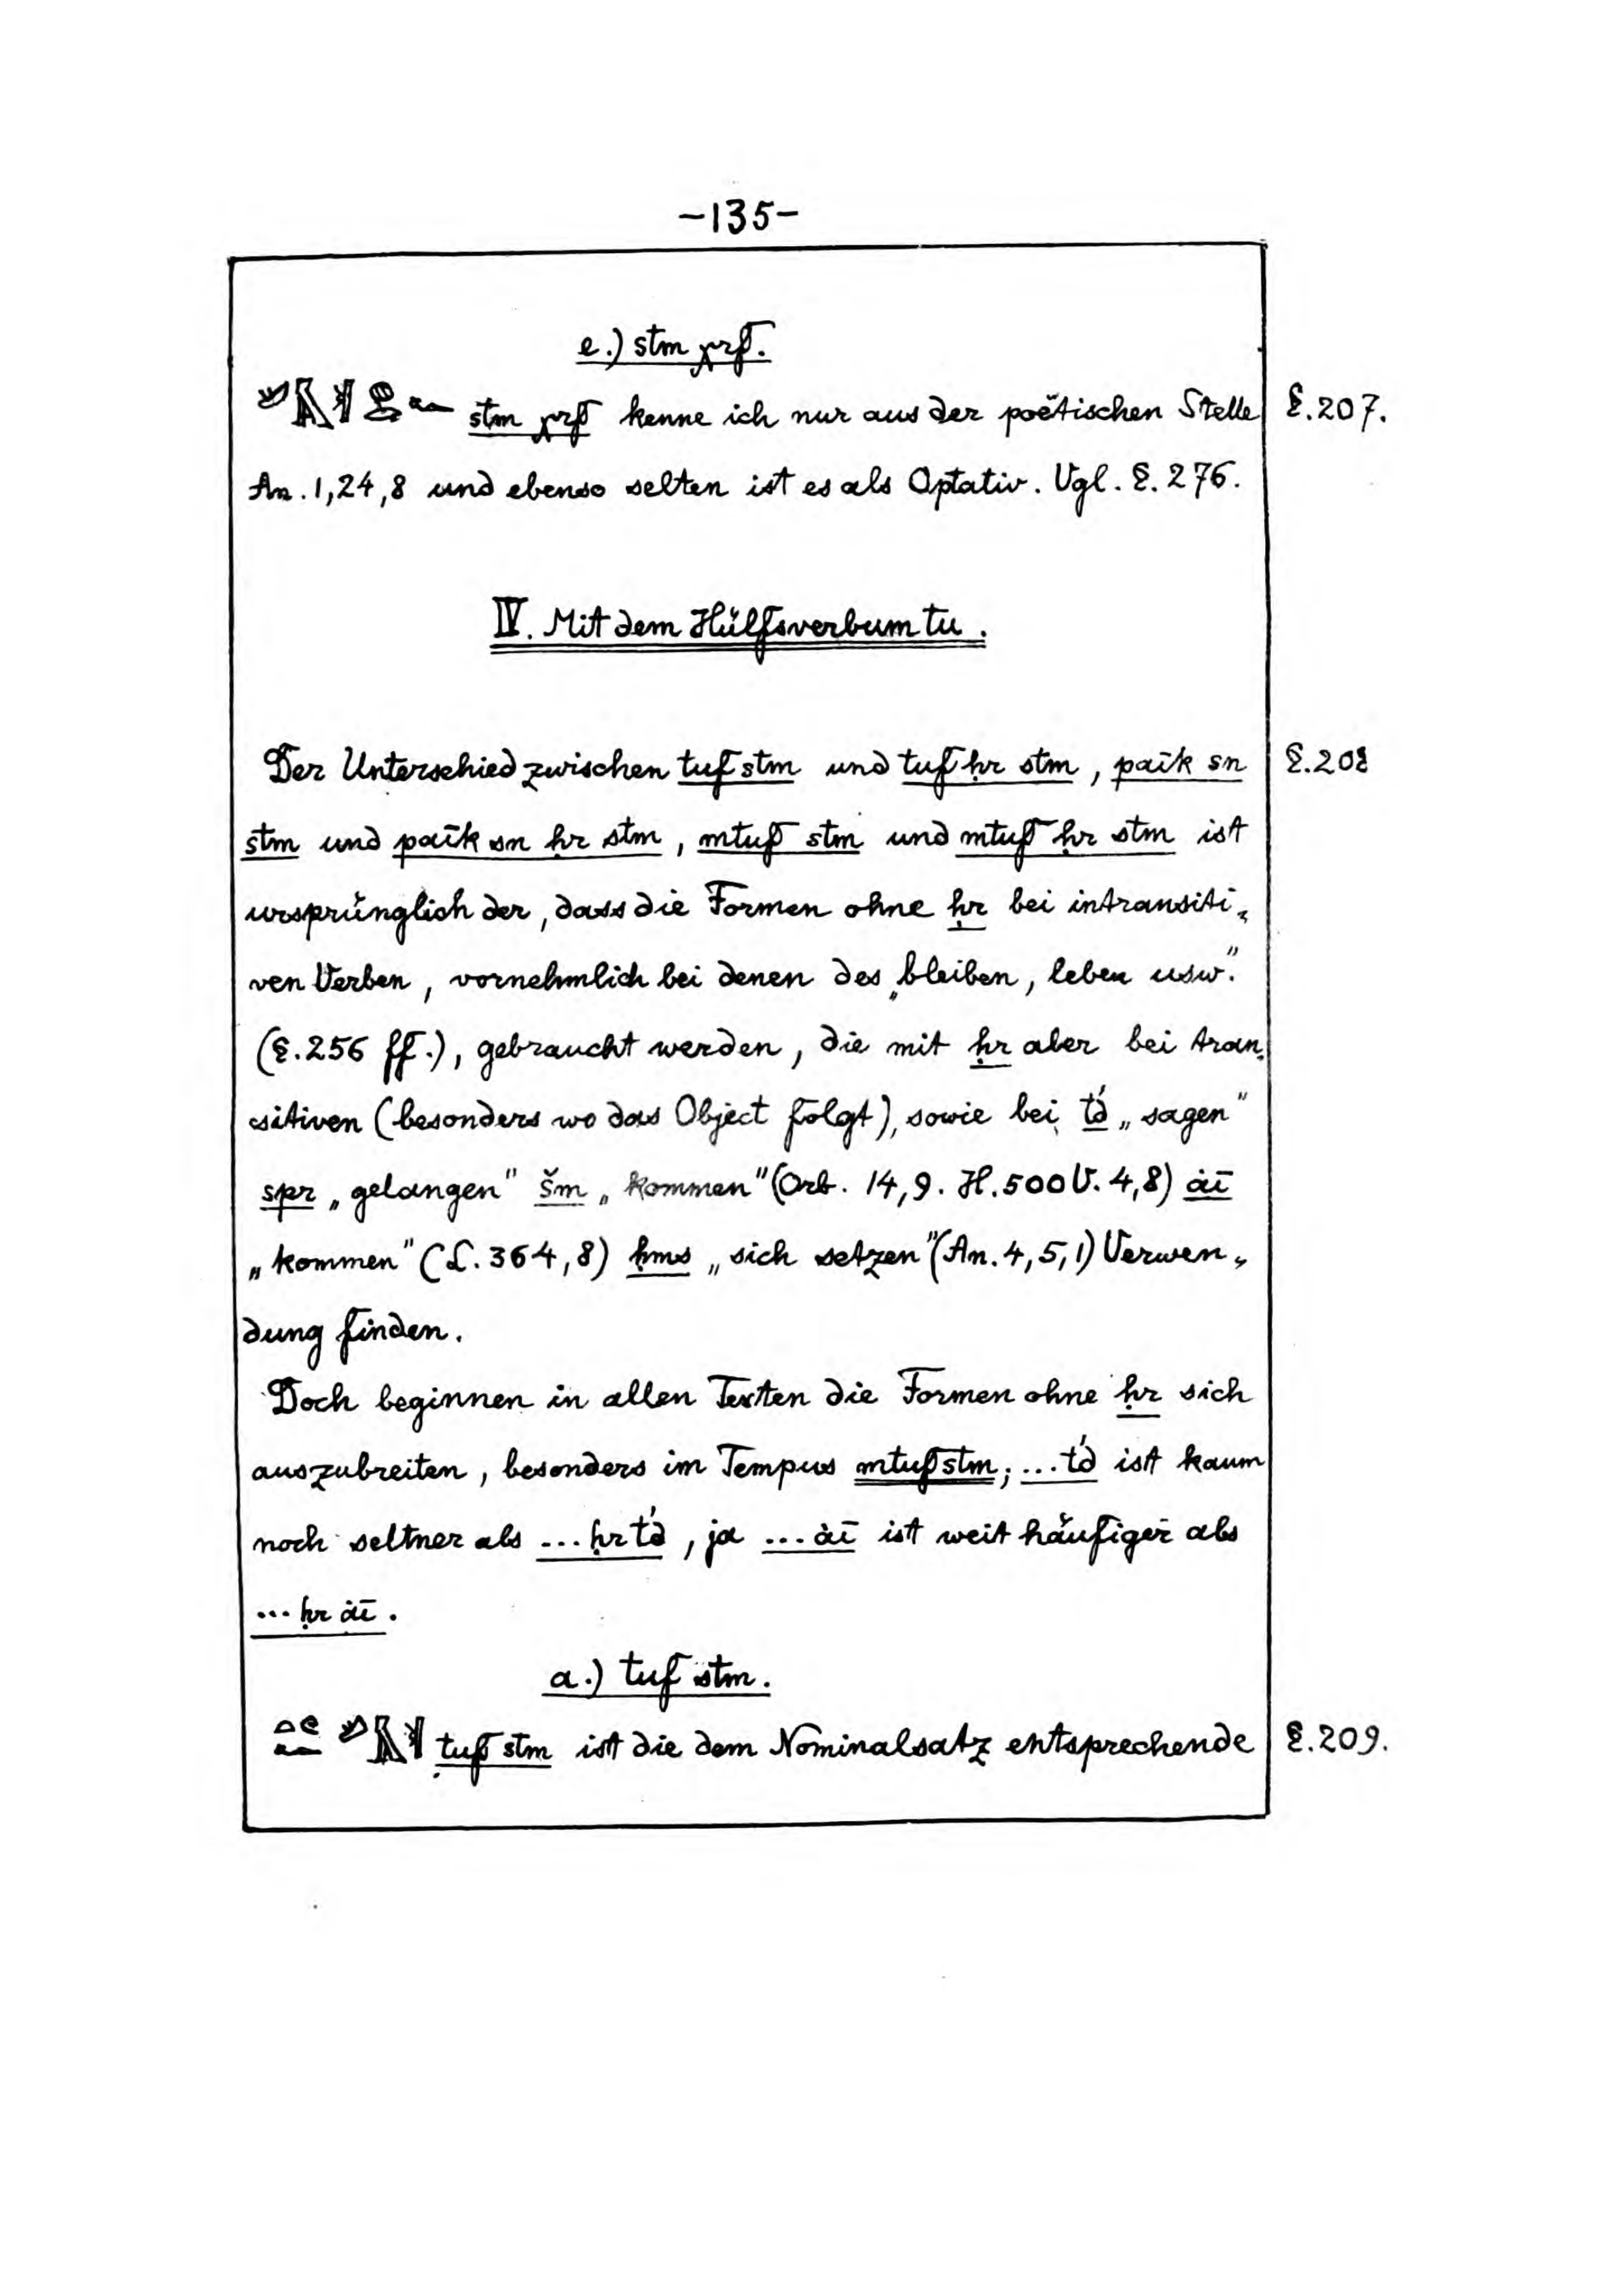 -135-
e.) stm χrf.
stm χrf kenne ich nur aus der poëtischen Stelle §.207.
An. 1,24,8 und ebenso selten ist es als Optativ. Vgl. §. 276.
IV. Mit dem Hülfsverbum tu.
Der Unterschied zwischen tuf stm und tuf ḥr stm, paīk sn §.208
stm und paīk sn ḥr stm, mtuf stm und mtuf ḥr stm ist
ursprünglich der, dass die Formen ohne ḥr bei intransiti-
ven Verben, vornehmlich bei denen des „bleiben, leben usw."
(§.256 ff.), gebraucht werden, die mit ḥr aber bei tran-
sitiven (besonders wo das Object folgt), sowie bei t́d „sagen"
spr „gelangen" šm „kommen" (Orb. 14,9. H.500 V. 4,8) ȧī
„kommen" (L. 364,8) ḥms „sich setzen" (An. 4,5,1) Verwen-
dung finden.
Doch beginnen in allen Texten die Formen ohne ḥr sich
auszubreiten, besonders im Tempus mtuf stm; ... t́d ist kaum
noch seltner als ... ḥr t́d, ja ... ȧī ist weit häufiger als
... ḥr ȧī.
a.) tuf stm.
tuf stm ist die dem Nominalsatz entsprechende §.209.